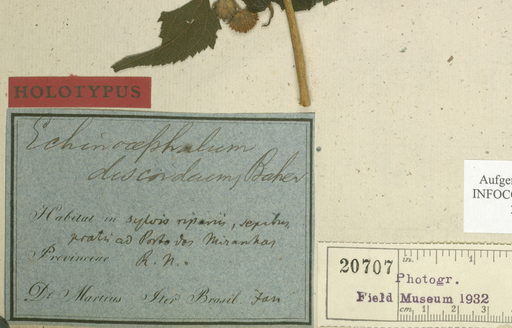 HOLOTYPUS
Echinocephalum
discordeum, Baker
Habitat in sylvis ripariis, sepibus
pratis ad Porto dos Miranhas
Provinciae R. N.
Dr Martius Iter Brasil. Jan
Aufgen
INFOCO
20707
in. 1
Photogr.
Field Museum 1932
cm. 1 2 3